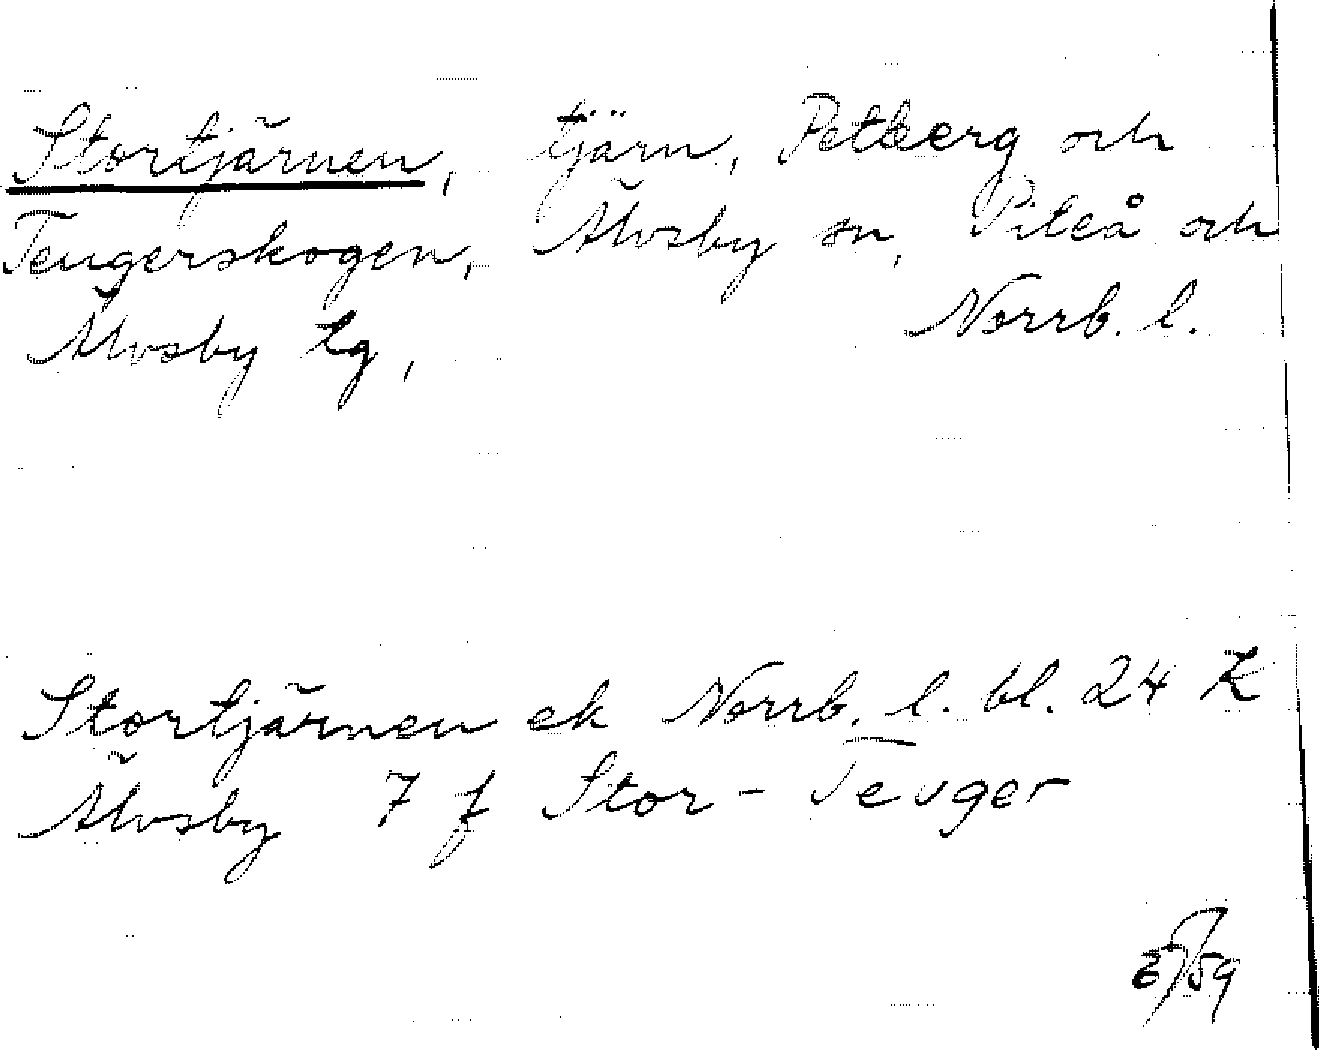 Stortjärnen, tjärn, Petberg och
Teugerskogen, Älvsby sn, Piteå och
Älvsby tg, Norrb. l.
Stortjärnen ek Norrb. l. bl. 24 K
Älvsby 7 f Stor-Teuger